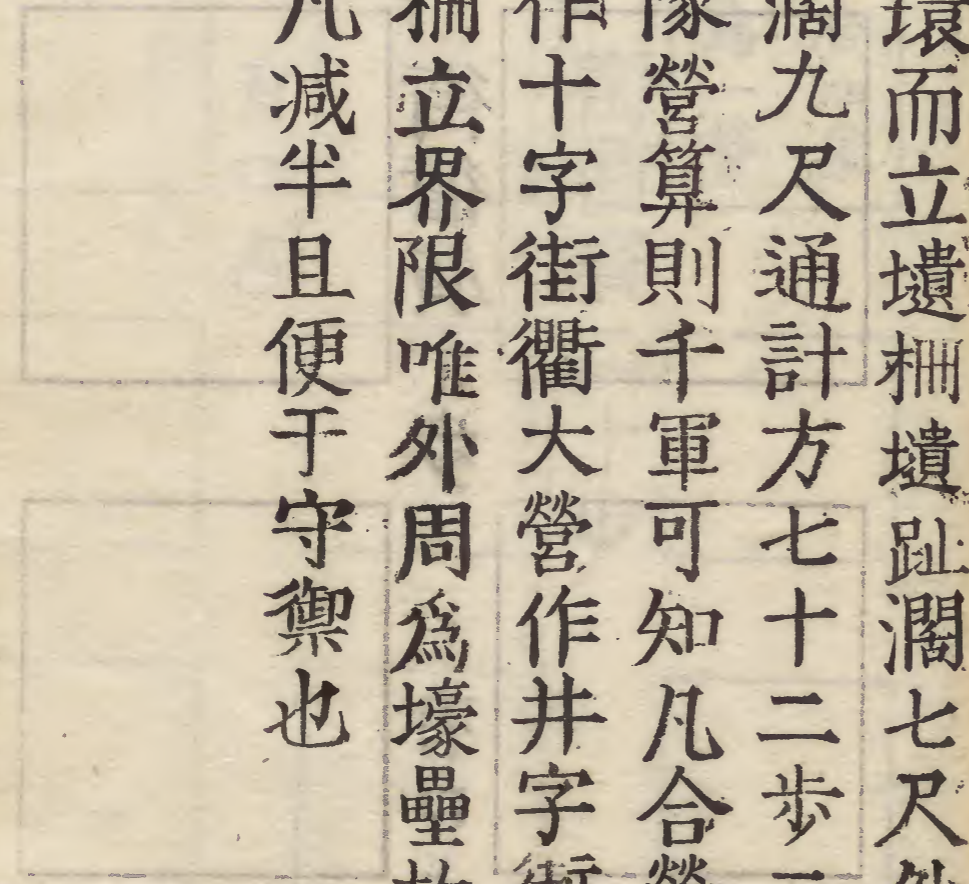 環而立壝柵壝趾濶七尺外
濶九尺通計方七十二步二
隊營算則千軍可知凡合營
作十字街衢大營作井字街
柵立界限唯外周爲壕壘故
凡減半且便于守禦也